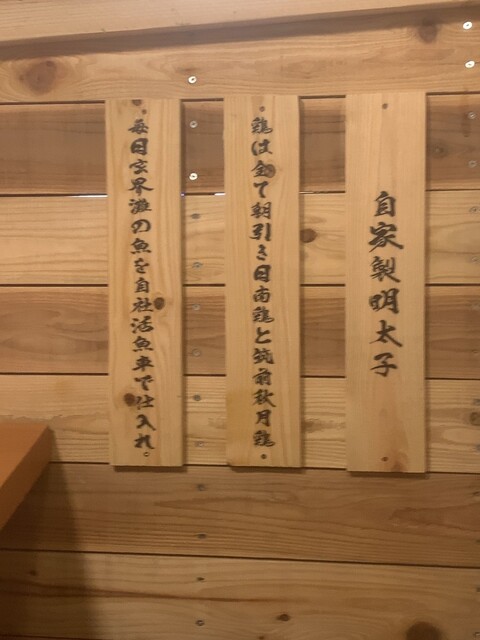 自家製明太子
鶏は全て朝引き日南鶏と筑前秋月鶏
毎日玄界灘の魚を自社活魚車で仕入れ。